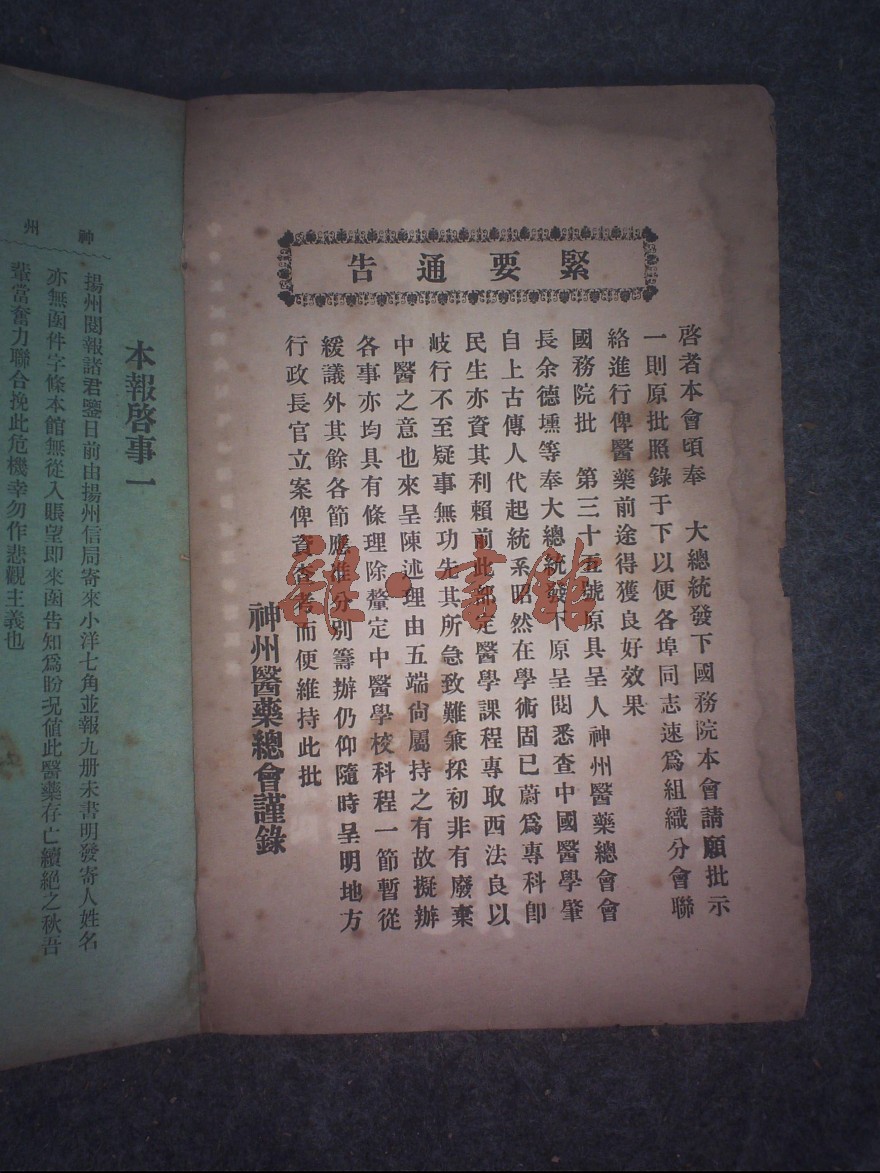 緊要通告
啓者本會頃奉　大總統發下國務院本會請願批示
一則原批照錄于下以便各埠同志速爲組織分會聯
絡進行俾醫藥前途得獲良好效果
國務院批　第三十五號原具呈人神州醫藥總會會
長余德壎等奉大總統發下原呈閱悉查中國醫學肇
自上古傳人代起統系昭然在學術固已蔚爲專科卽
民生亦資其利賴前此部定醫學課程專取西法良以
岐行不至疑事無功先其所急致難兼採初非有廢棄
中醫之意也來呈陳述理由五端尙屬持之有故擬辦
各事亦均具有條理除釐定中醫學校科程一節暫從
緩議外其餘各節應准分別籌辦仍仰隨時呈明地方
行政長官立案俾資查考而便維持此批
神州醫藥總會謹錄
雜·書館
神州
本報啓事一
揚州閱報諸君鑒日前由揚州信局寄來小洋七角並報九册未書明發寄人姓名
亦無函件字條本館無從入賬望即來函告知爲盼況値此醫藥存亡續絕之秋吾
輩當奮力聯合挽此危機幸勿作悲觀主義也